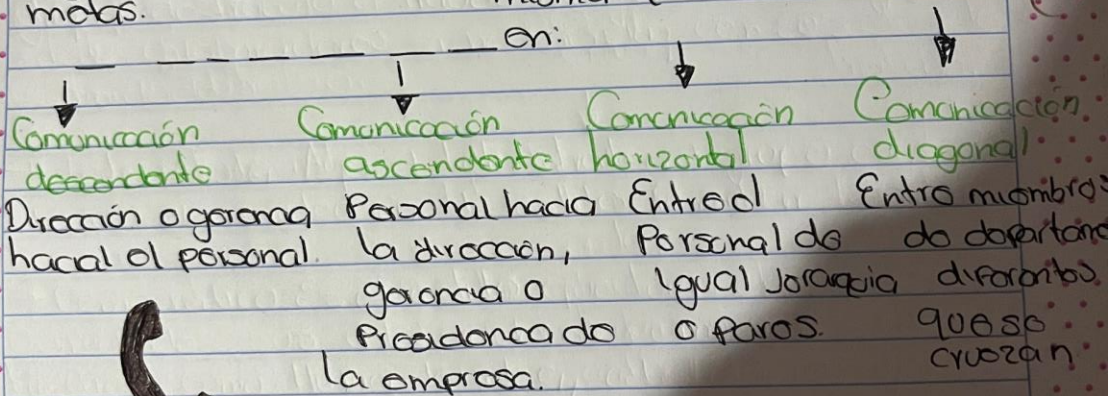 metas.
en:
Comunicación
descendente
Dirección o gerencia
hacial el personal.
Comunicación
ascendente
Personal hacia
la dirección,
gerencia o
Presidencia de
la empresa.
Comunicación
horizontal
Entre el
Personal de
igual jerarquia
o Pares.
Comunicación
diagonal
Entre miembros
de departame
diferentes.
que se
cruzan